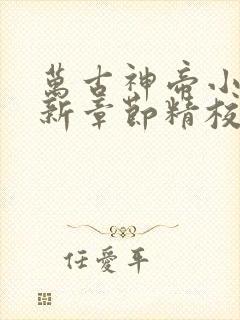 萬古神帝小
新章節精校
任愛平